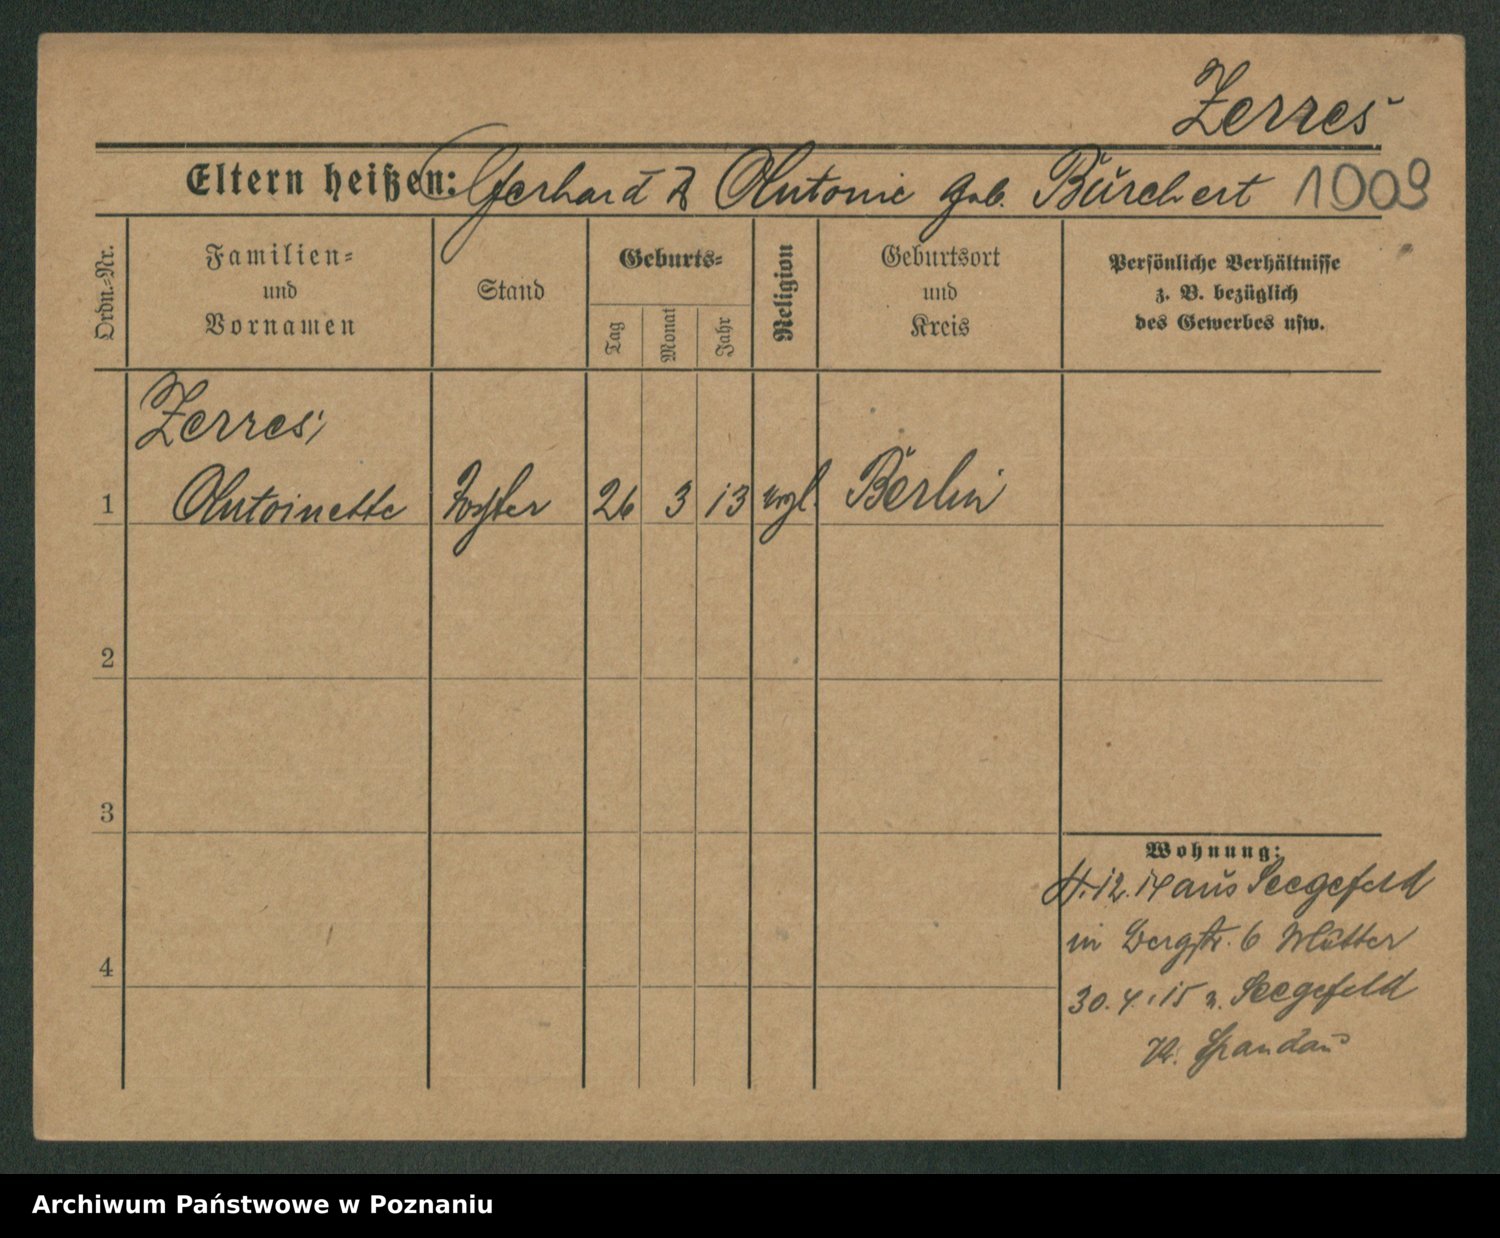 Zerres
Eltern heißen: Gerhard & Antonie geb. Burchert 1009
Ordn.-Nr.
Familien-
und
Vornamen
Stand
Geburts-
Tag
Monat
Jahr
Religion
Geburtsort
und
Kreis
Persönliche Verhältnisse
z. B. bezüglich
des Gewerbes usw.
Zerres,
1 Antoinette Tochter 26 3 13 evgl. Berlin
2
3
4
Wohnung:
4.12.14 aus Seegefeld
in Bergstr. 6 Mutter
30.4.15 n. Seegefeld
Kr. Spandau
Archiwum Państwowe w Poznaniu